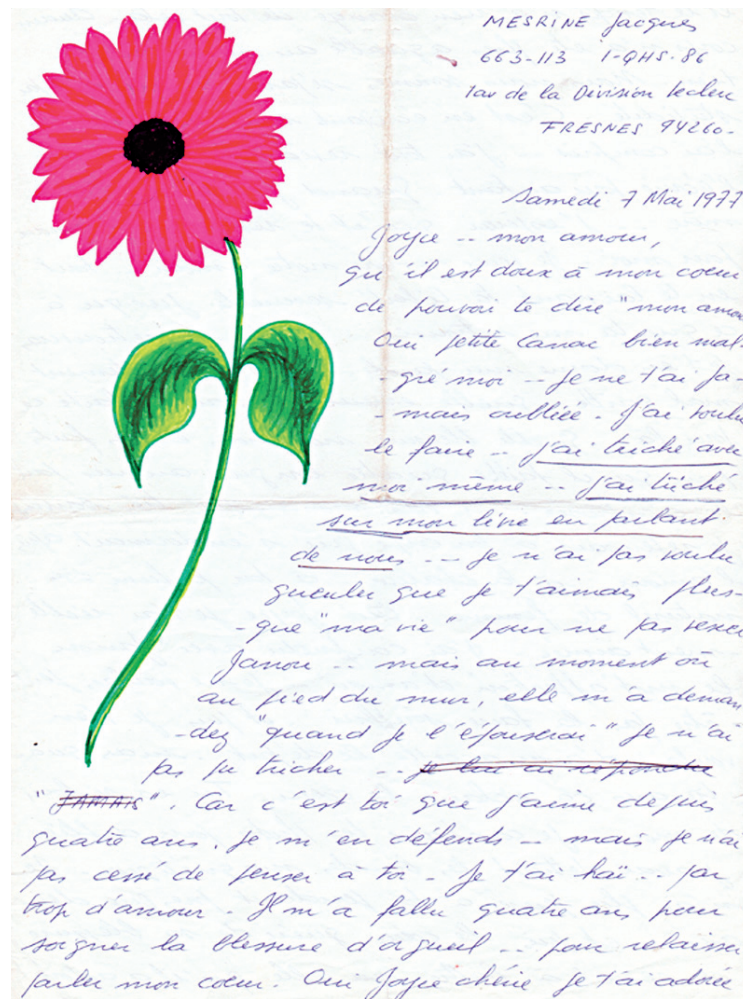 MESRINE Jacques
663-113 1-QHS-86
1 av de la Division Leclerc
FRESNES 94260-
Samedi 7 Mai 1977
Joyce -- mon amour,
qu'il est doux à mon coeur
de pouvoir te dire "mon amou
Oui petite Canac bien mal-
-gré moi -- Je ne t'ai ja-
-mais oubliée - J'ai voulu
le faire -- j'ai triché avec
moi même -- j'ai triché
sur mon livre en parlant
de nous -- Je n'ai pas voulu
gueuler que je t'aimais plus-
-que "ma vie" pour ne pas vexer
Janou -- mais au moment où
au pied du mur, elle m'a deman
-dez "quand je l'épouserai" Je n'ai
pas pu tricher -- je lui ai répondu
"JAMAIS". Car c'est toi que j'aime depuis
quatre ans. Je m'en défends -- mais je n'ai
pas cessé de penser à toi - Je t'ai haï - par
trop d'amour - Il m'a fallu quatre ans pour
soigner la blessure d'orgueil -- pour relaisser
parler mon coeur. Oui Joyce chérie je t'ai adorée